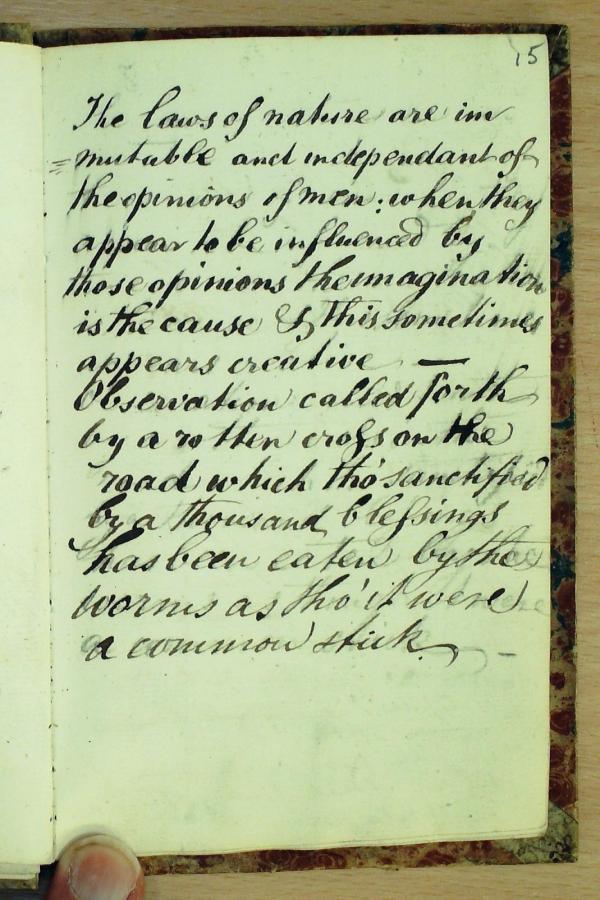 15
The laws of nature are im
=mutable and independant of
the opinions of men: when they
appear to be influenced by
those opinions the imagination
is the cause & this sometimes
appears creative —
Observation called forth
by a rotten croſs on the
road which tho' sanctified
by a thousand bleſsings
has been eaten by the
worms as tho' it were
a common stick. –